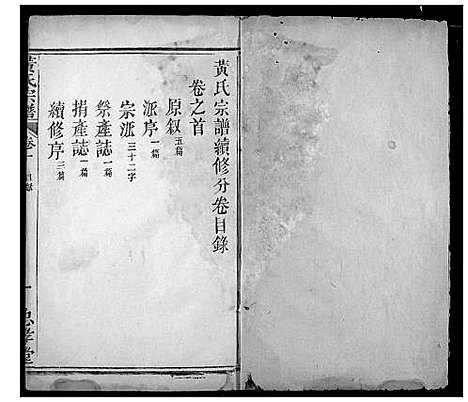 黃氏宗譜續修分卷目錄
卷之首
原叙 五篇
派序 一篇
宗派 三十二字
祭產誌 一篇
捐產誌 一篇
續修序 三篇
黃氏宗譜 卷一 目錄 一